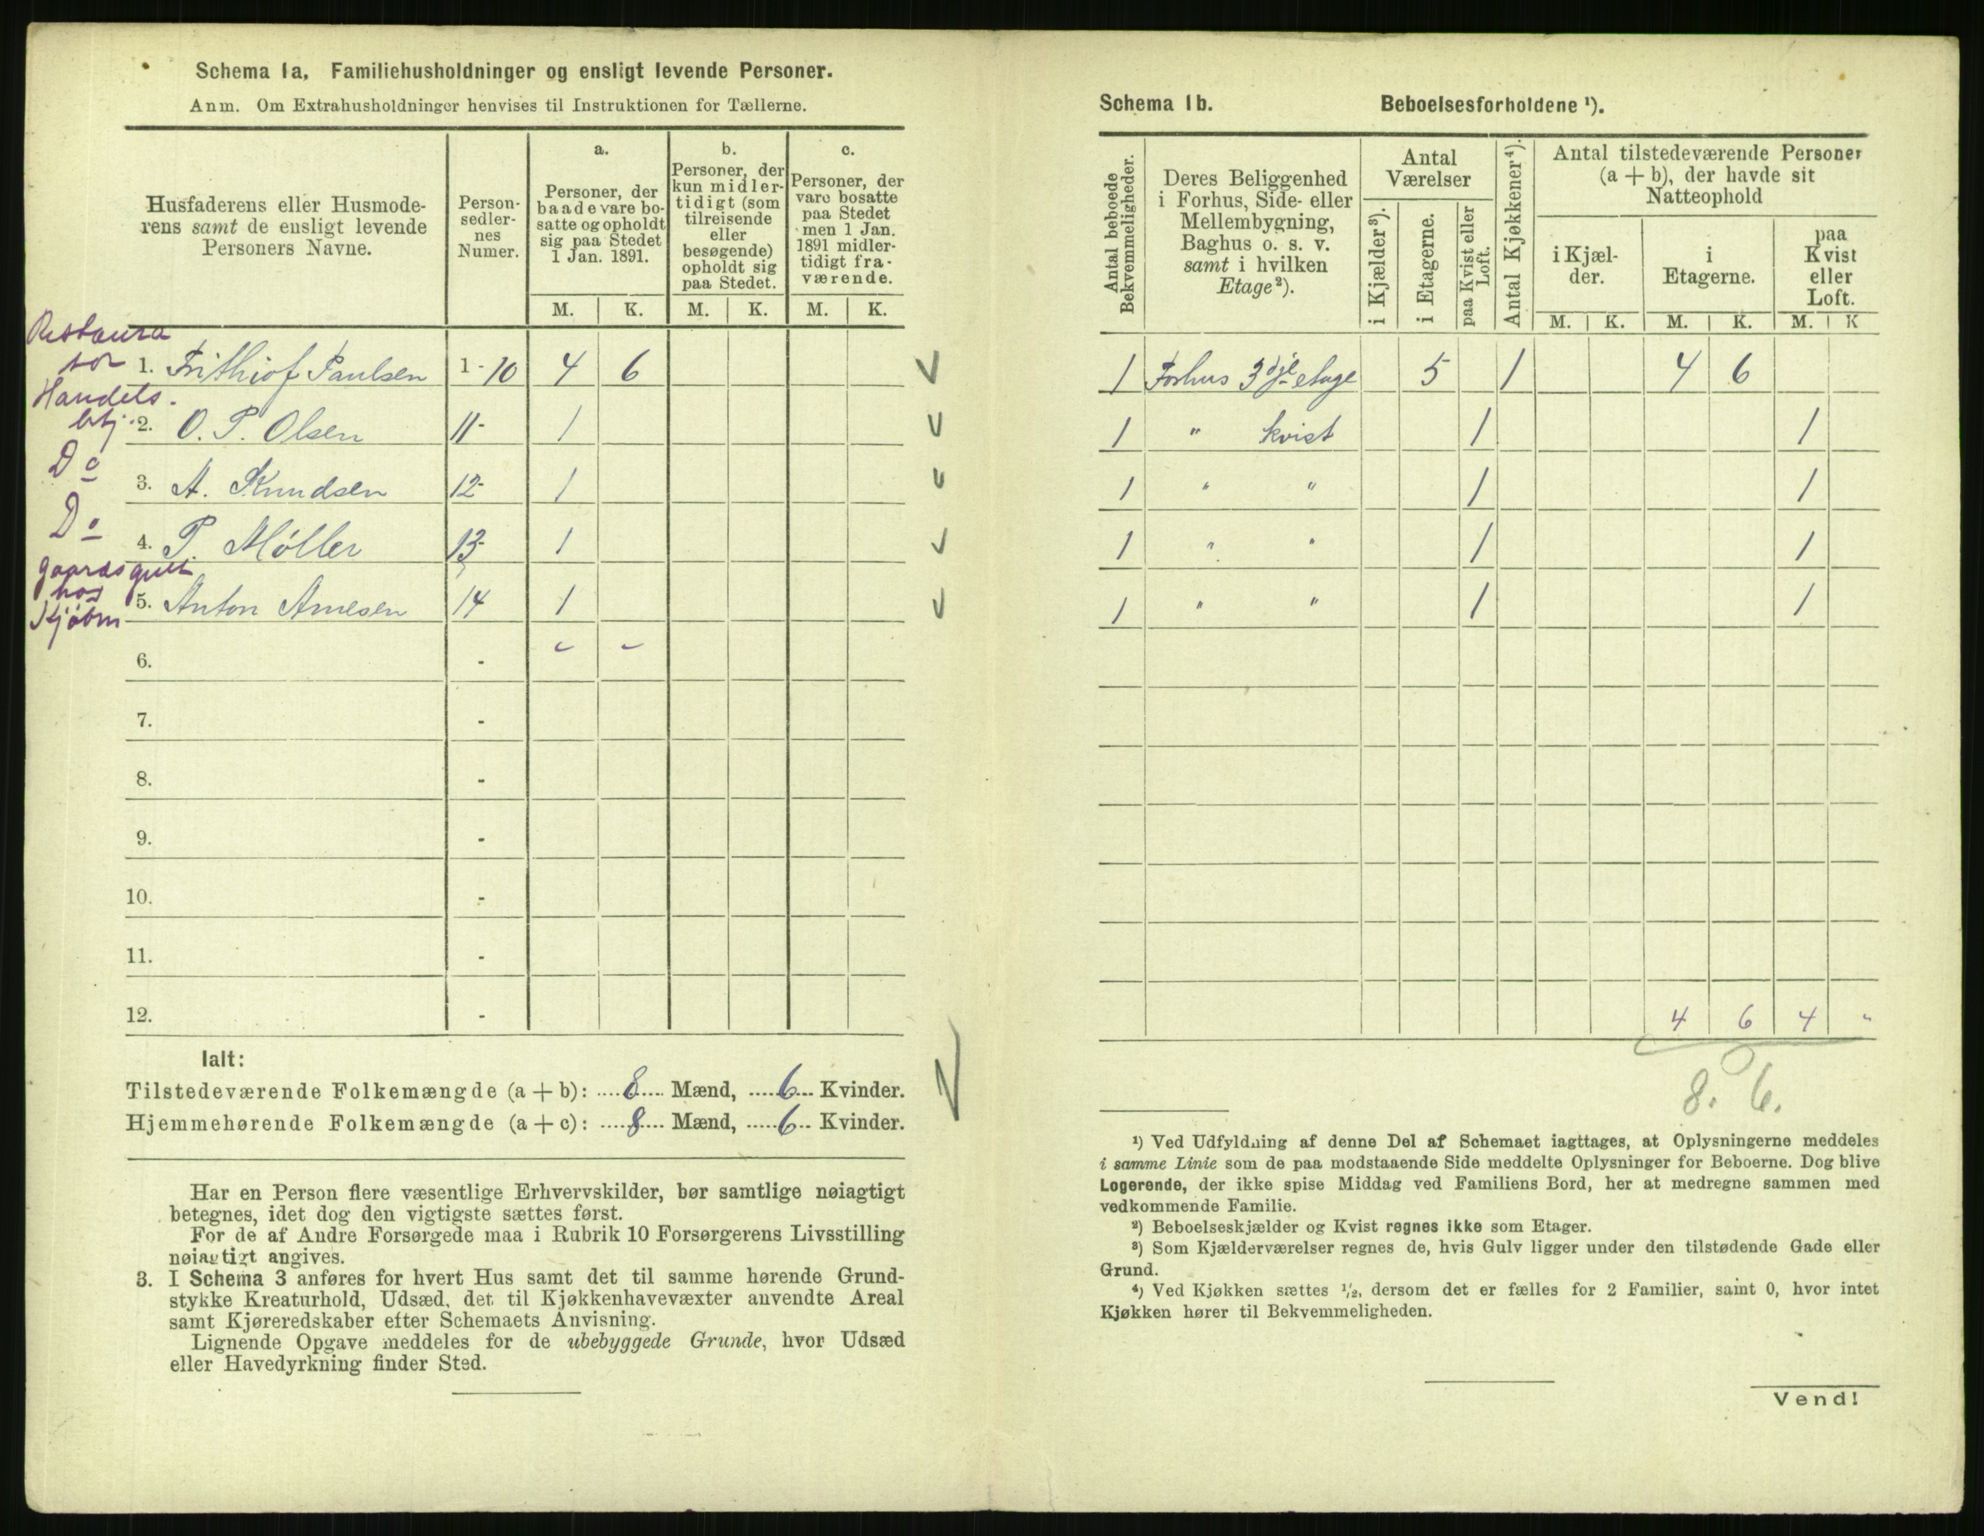 Schema 1a, Familiehusholdninger og ensligt levende Personer.
Anm. Om Extrahusholdninger henvises til Instruktionen for Tællerne.
Husfaderens eller Husmode-
rens samt de ensligt levende
Personers Navne.
Person-
sedler-
nes
Numer.
a.
Personer, der
baade vare bo-
satte og opholdt
sig paa Stedet
1 Jan. 1891.
b.
Personer, der
kun midler-
tidigt (som
tilreisende
eller
besøgende)
opholdt sig
paa Stedet.
c.
Personer, der
vare bosatte
paa Stedet
men 1 Jan.
1891 midler-
tidigt fra-
værende.
M. K. M. K. M. K.
Restaura
tør
1. Frithiof Paulsen 1-10 4 6
Handels.
btj.
2. O. P. Olsen 11- 1
Do
3. A. Knudsen 12- 1
Do
4. P. Møller 13- 1
gaardsgutt
hos
Kjøbm
5. Anton Arnesen 14 1
6. - " "
7. -
8. -
9. -
10. -
11. -
12. -
Ialt:
Tilstedeværende Folkemængde (a + b): 8 Mænd, 6 Kvinder.
Hjemmehørende Folkemængde (a + c): 8 Mænd, 6 Kvinder.
Har en Person flere væsentlige Erhvervskilder, bør samtlige nøiagtigt
betegnes, idet dog den vigtigste sættes først.
For de af Andre Forsørgede maa i Rubrik 10 Forsørgerens Livsstilling
nøiagtigt angives.
3. I Schema 3 anføres for hvert Hus samt det til samme hørende Grund-
stykke Kreaturhold, Udsæd, det til Kjøkkenhavevæxter anvendte Areal
samt Kjøreredskaber efter Schemaets Anvisning.
Lignende Opgave meddeles for de ubebyggede Grunde, hvor Udsæd
eller Havedyrkning finder Sted.
Schema 1b. Beboelsesforholdene ¹).
Antal beboede
Bekvemmeligheder.
Deres Beliggenhed
i Forhus, Side- eller
Mellembygning,
Baghus o. s. v.
samt i hvilken
Etage²).
Antal
Værelser
i Kjælder³).
i Etagerne.
paa Kvist eller
Loft.
Antal Kjøkkener⁴).
Antal tilstedeværende Personer
(a + b), der havde sit
Natteophold
i Kjæl-
der.
i
Etagerne.
paa
Kvist
eller
Loft.
M. K. M. K. M. K
1 Forhus 3dje etage 5 1 4 6
1 " kvist 1 1
1 " " 1 1
1 " " 1 1
1 " " 1 1
4 6 4 "
8. 6.
¹) Ved Udfyldning af denne Del af Schemaet iagttages, at Oplysningerne meddeles
i samme Linie som de paa modstaaende Side meddelte Oplysninger for Beboerne. Dog blive
Logerende, der ikke spise Middag ved Familiens Bord, her at medregne sammen med
vedkommende Familie.
²) Beboelseskjælder og Kvist regnes ikke som Etager.
³) Som Kjælderværelser regnes de, hvis Gulv ligger under den tilstødende Gade eller
Grund.
⁴) Ved Kjøkken sættes ¹/₂, dersom det er fælles for 2 Familier, samt 0, hvor intet
Kjøkken hører til Bekvemmeligheden.
Vend!